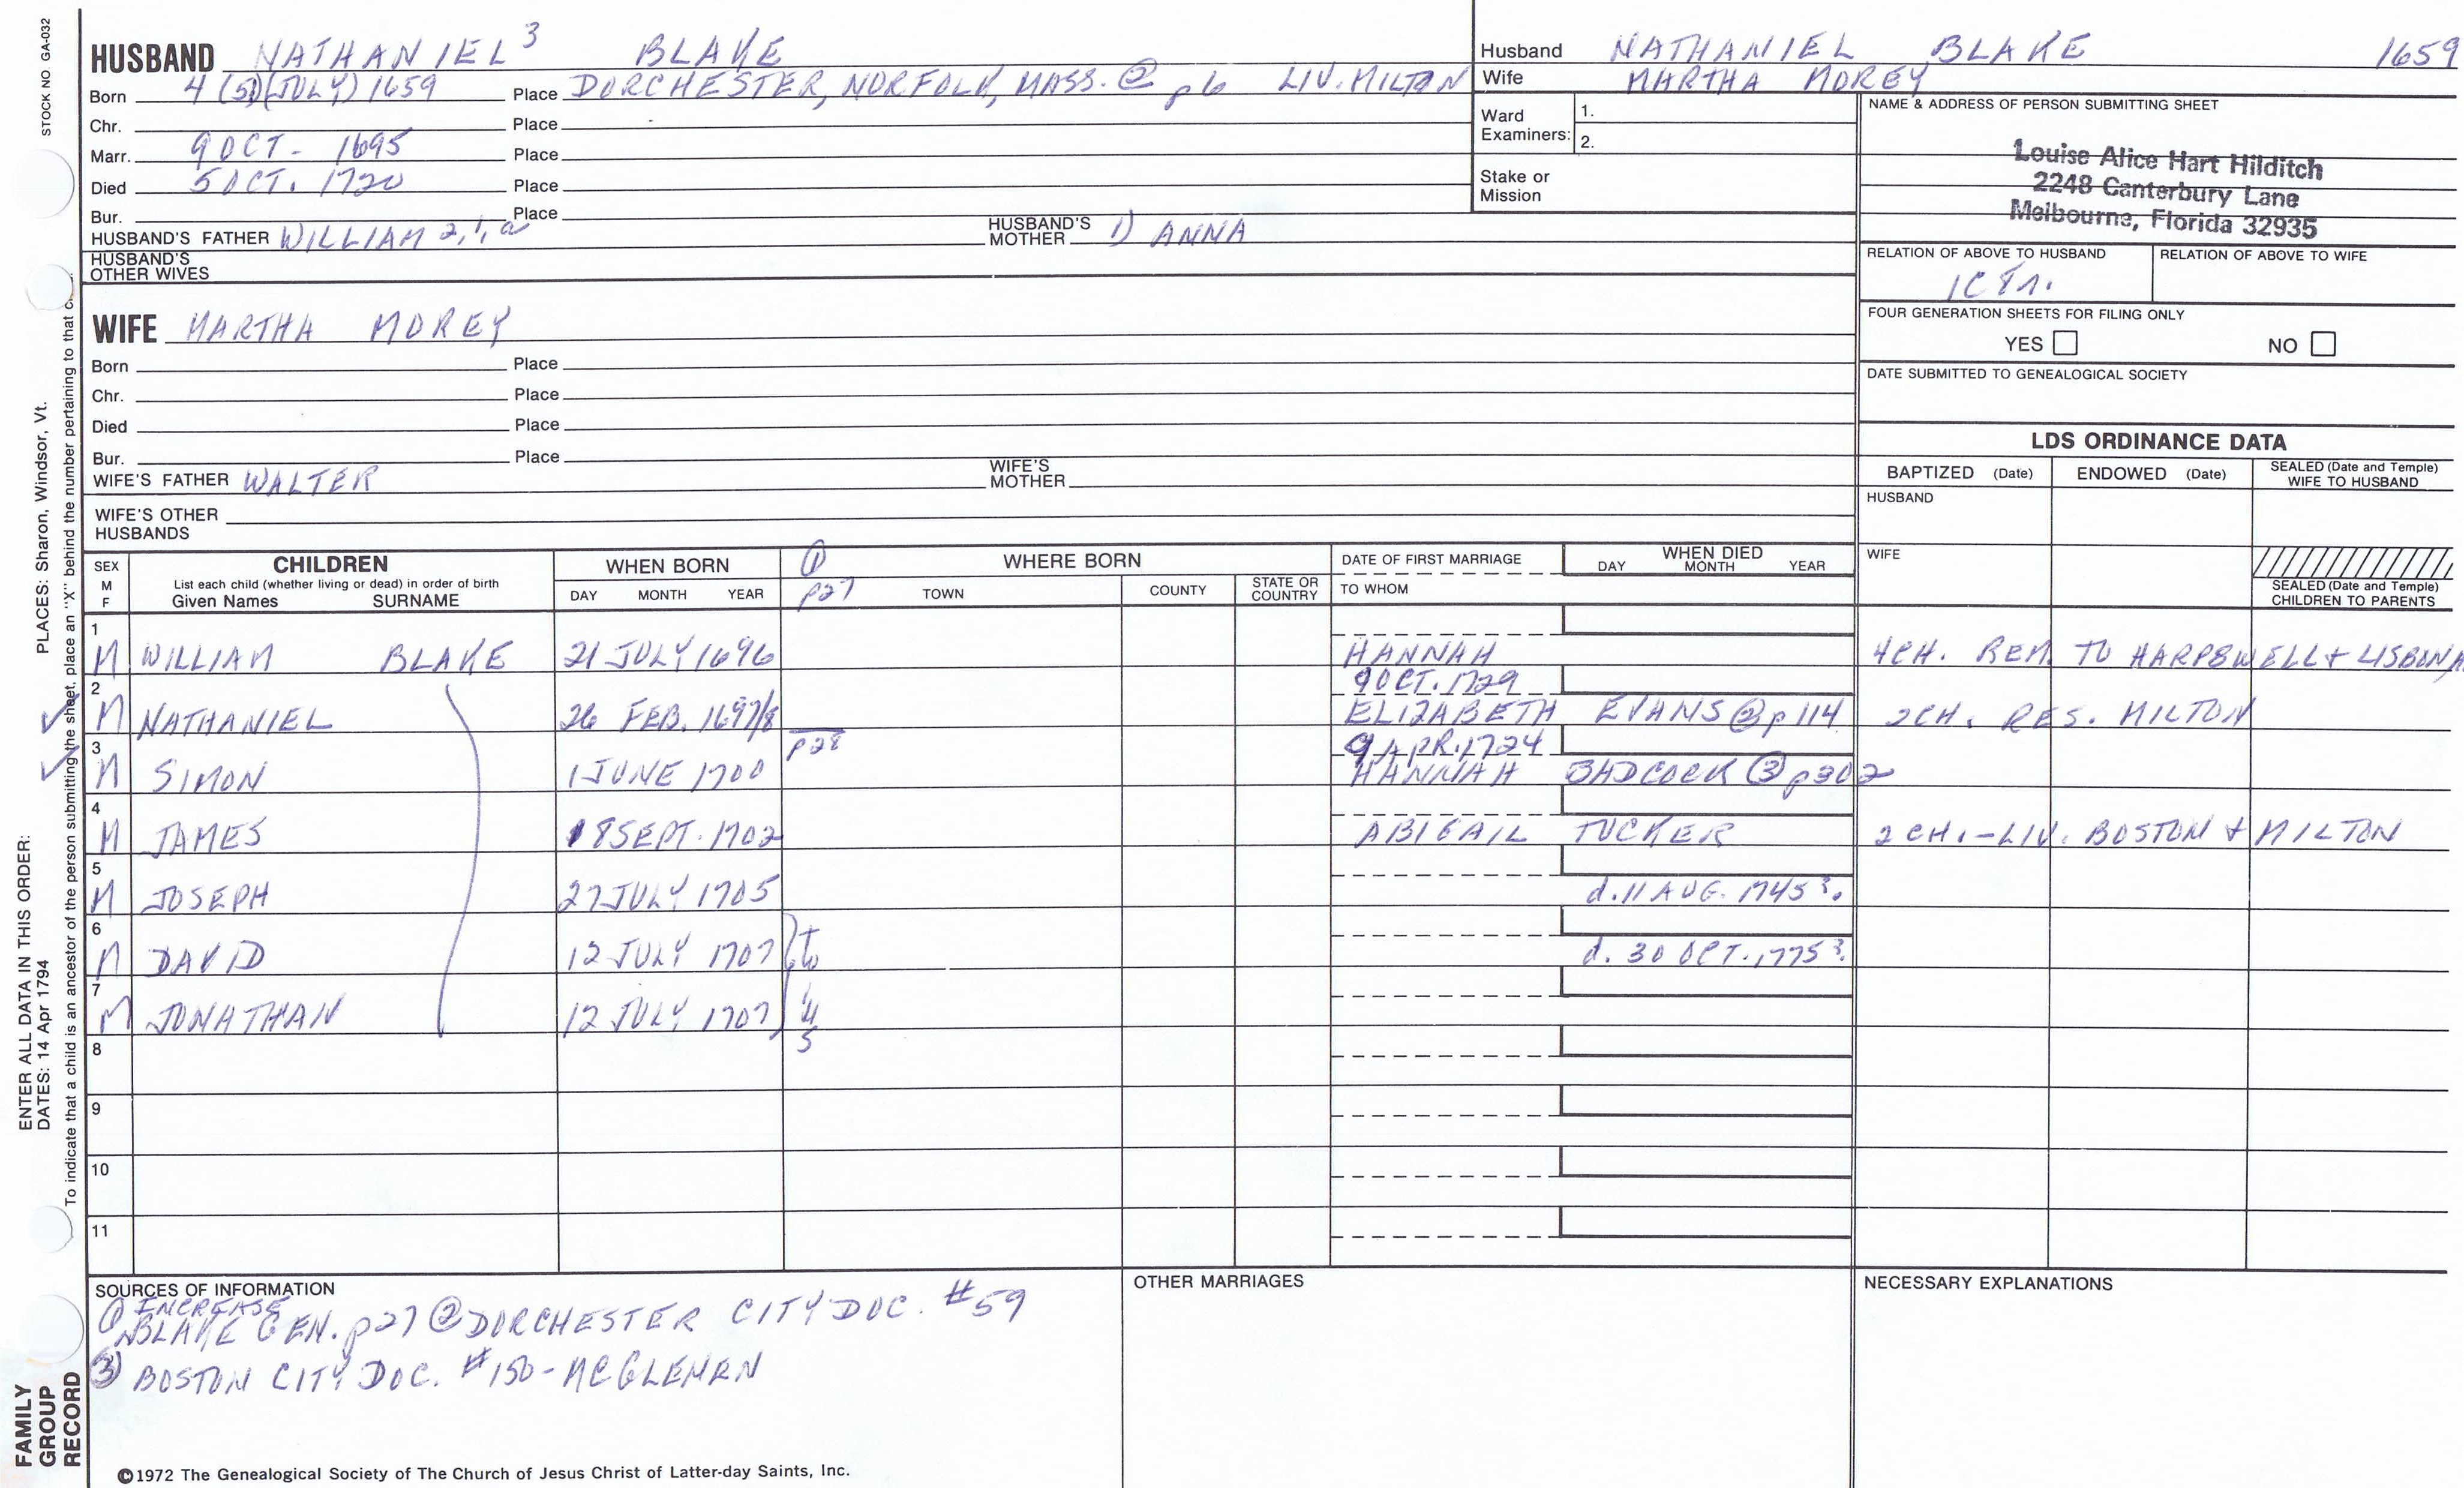 STOCK NO. GA-032
HUSBAND NATHANIEL³ BLAKE
Born 4 (5)(JULY) 1659 Place DORCHESTER, NORFOLK, MASS. ② p6 LIV. MILTON
Chr. Place
Marr. 9 OCT - 1695 Place
Died 5 OCT. 1720 Place
Bur. Place
HUSBAND'S FATHER WILLIAM 2, 1, a HUSBAND'S MOTHER 1) ANNA
HUSBAND'S OTHER WIVES
Husband NATHANIEL BLAKE 1659
Wife MARTHA MOREY
Ward Examiners: 1.
2.
Stake or Mission
NAME & ADDRESS OF PERSON SUBMITTING SHEET
Louise Alice Hart Hilditch
2248 Canterbury Lane
Melbourne, Florida 32935
RELATION OF ABOVE TO HUSBAND RELATION OF ABOVE TO WIFE
FOUR GENERATION SHEETS FOR FILING ONLY
YES NO
DATE SUBMITTED TO GENEALOGICAL SOCIETY
WIFE MARTHA MOREY
Born Place
Chr. Place
Died Place
Bur. Place
WIFE'S FATHER WALTER WIFE'S MOTHER
WIFE'S OTHER HUSBANDS
LDS ORDINANCE DATA
BAPTIZED (Date) ENDOWED (Date) SEALED (Date and Temple) WIFE TO HUSBAND
HUSBAND
WIFE
SEALED (Date and Temple) CHILDREN TO PARENTS
SEX M F CHILDREN List each child (whether living or dead) in order of birth Given Names SURNAME
WHEN BORN DAY MONTH YEAR
① p27 WHERE BORN TOWN COUNTY STATE OR COUNTRY
DATE OF FIRST MARRIAGE TO WHOM
WHEN DIED DAY MONTH YEAR
1 M WILLIAM BLAKE 21 JULY 1696 HANNAH 4CH. REM. TO HARPSWELL + LISBON,
9 OCT. 1729
2 M NATHANIEL 26 FEB. 1697/8 ELIZABETH EVANS ② p 114 2CH. RES. MILTON
p28 9 APR. 1724
3 M SIMON 1 JUNE 1700 HANNAH BADCOCK ③ p302
4 M JAMES 18 SEPT. 1702 ABIGAIL TUCKER 2 CH. - LIV. BOSTON + MILTON
5 M JOSEPH 27 JULY 1705 d. 11 AUG. 1745?.
6 M DAVID 12 JULY 1707 d. 30 OCT. 1775?.
7 M JONATHAN 12 JULY 1707
8
9
10
11
SOURCES OF INFORMATION
① INCREASE
BLAKE GEN. p27 ② DORCHESTER CITY DOC. #59
③ BOSTON CITY DOC. #150 - MCGLENEN
OTHER MARRIAGES
NECESSARY EXPLANATIONS
©1972 The Genealogical Society of The Church of Jesus Christ of Latter-day Saints, Inc.
ENTER ALL DATA IN THIS ORDER:
DATES: 14 Apr 1794 PLACES: Sharon, Windsor, Vt.
To indicate that a child is an ancestor of the person submitting the sheet, place an "X" behind the number pertaining to that
FAMILY
GROUP
RECORD